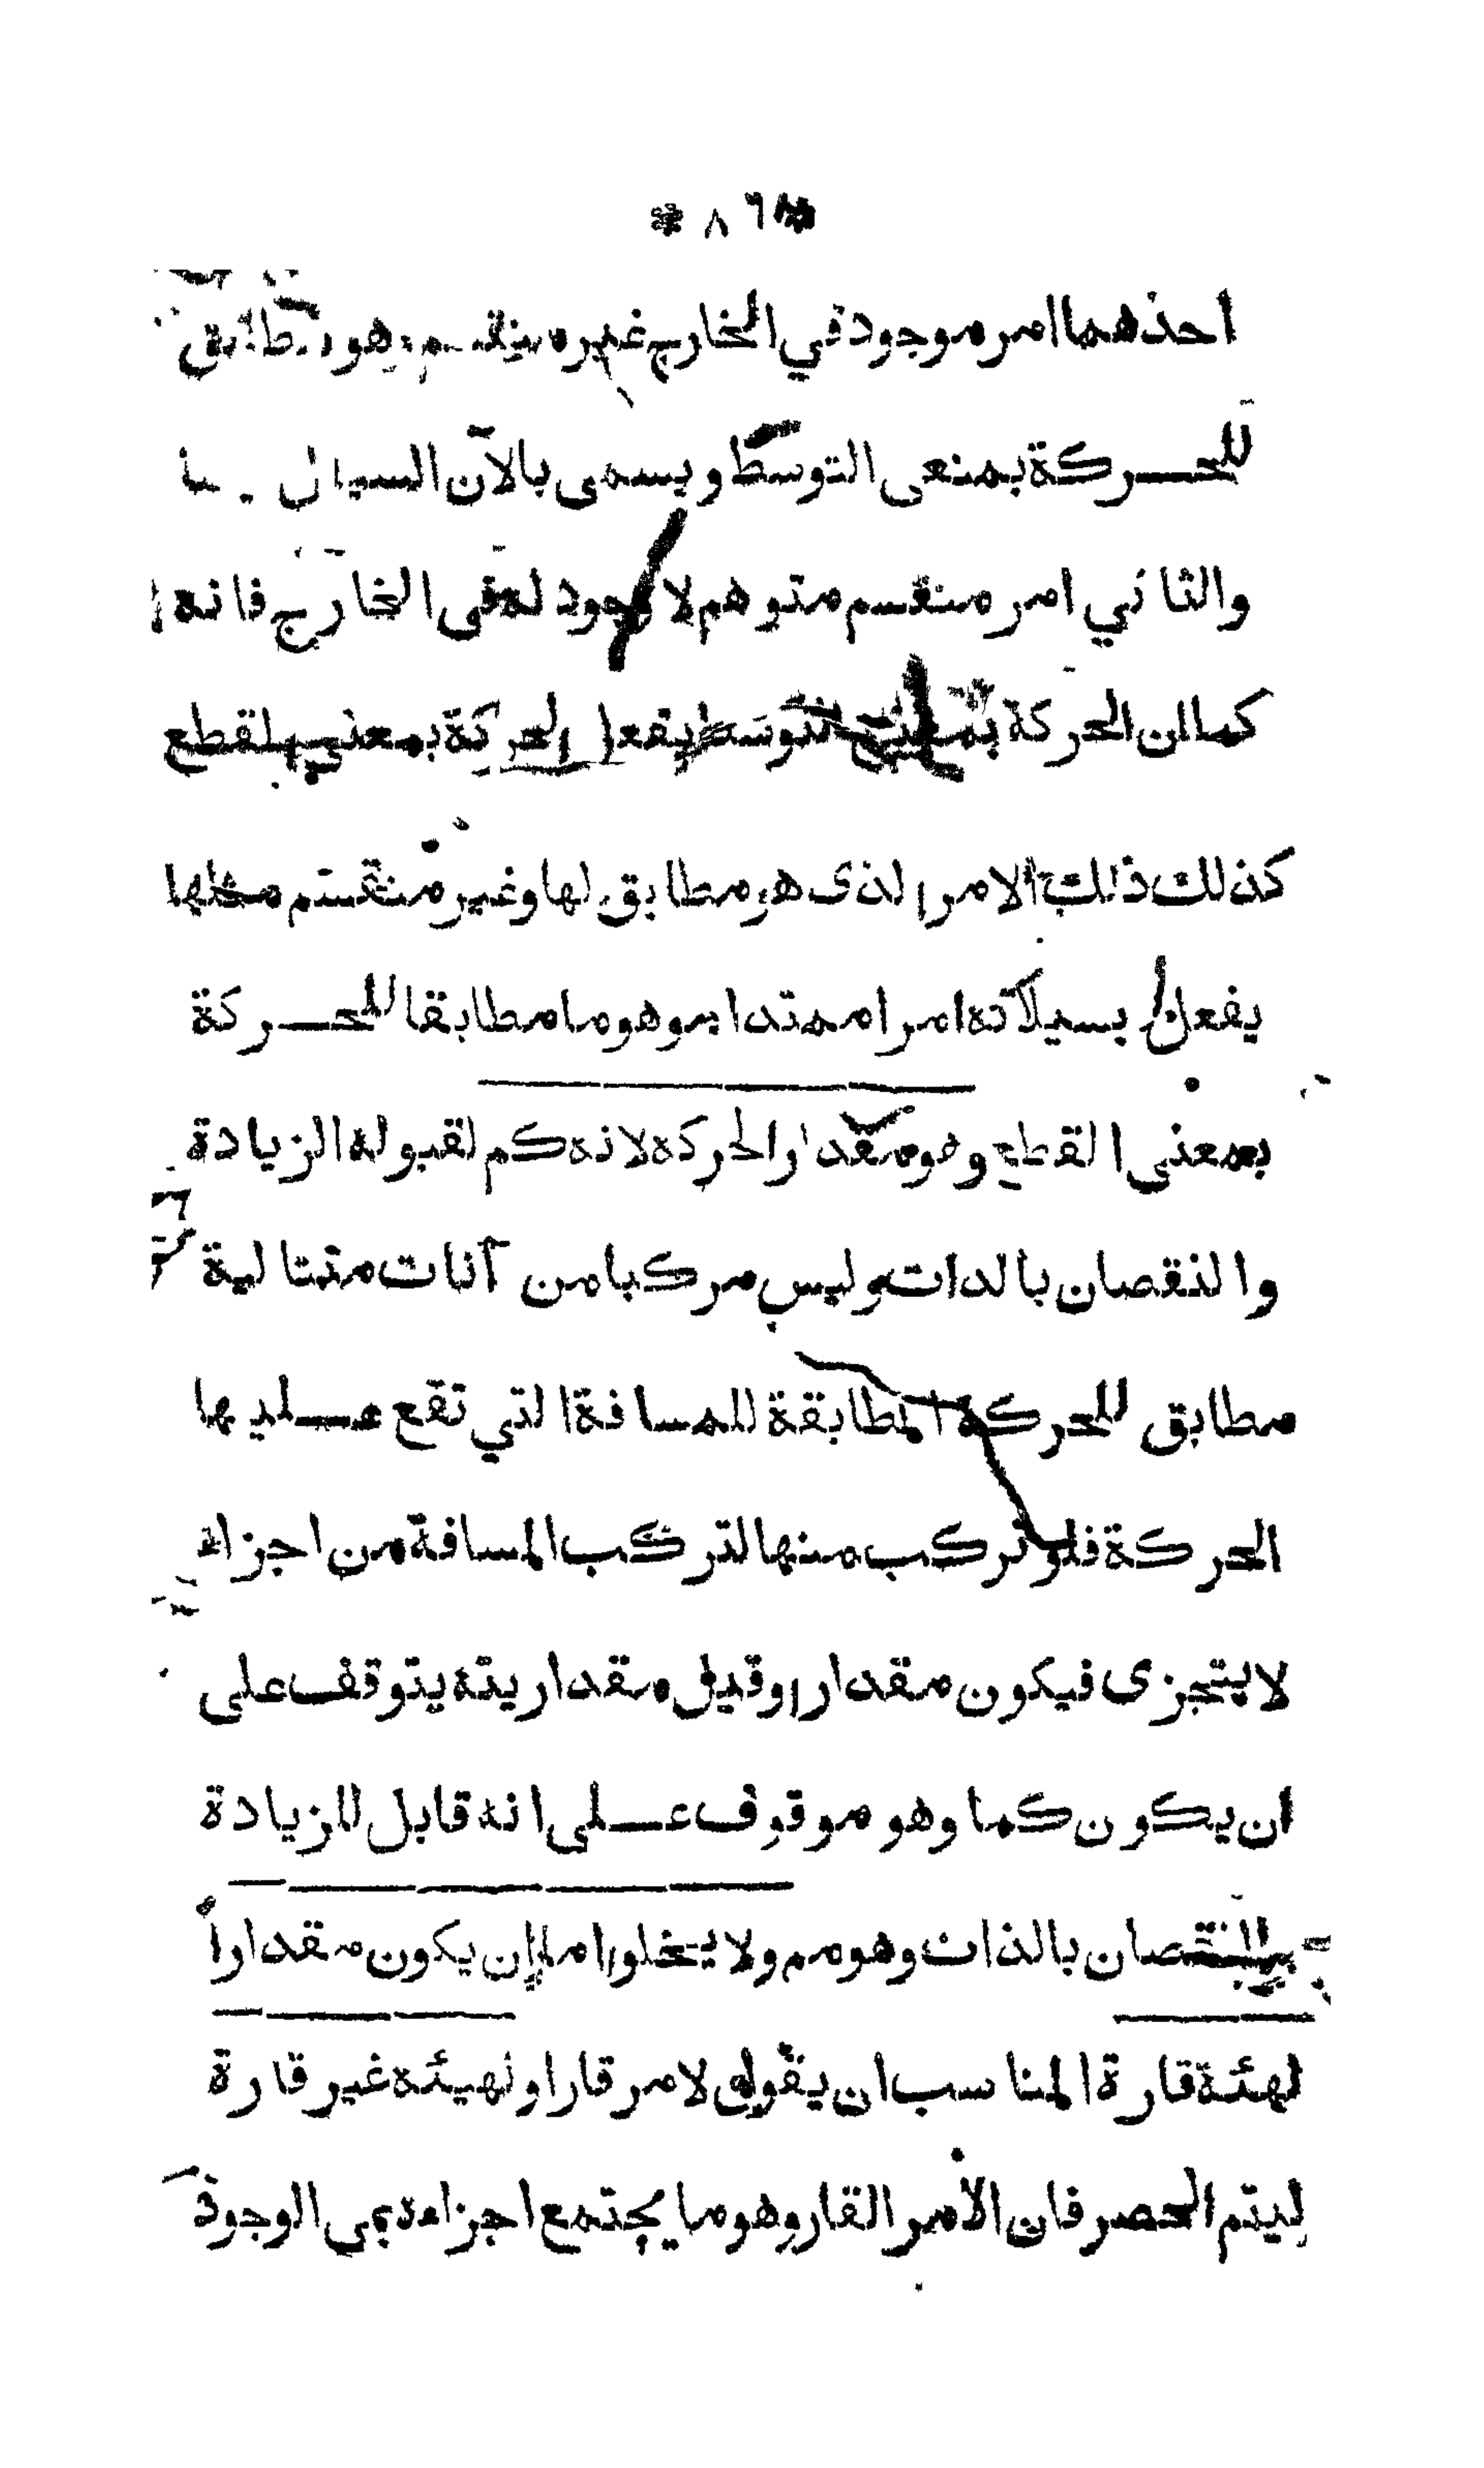 * ٨٦ *
احدهما امر موجود في الخارج غير منقسم وهو مطابق
للحركة بمنعى التوسط ويسمى بالآن السيال
والثاني امر منقسم متوهم لا وجود له فى الخارج فانه
كما ان الحركة بمعنى التوسط يفعل الحركة بمعنى القطع
كذلك ذلك الامر الذى هو مطابق لها وغير منقسم مثلها
يفعل بسيلانه امرا ممتدا موهوما مطابقا للحركة
بمعنى القطع وهو مقدار الحركة لانه كم لقبوله الزيادة
والنقصان بالذات وليس مركبا من آنات متتالية
مطابق للحركة المطابقة للمسافة التي تقع عليها
الحركة فلو تركب منها لتركب المسافة من اجزاء
لا يتجزى فيكون مقدارا وقيل مقداريته يتوقف على
ان يكون كما وهو موقوف على انه قابل للزيادة
والنقصان بالذات وهو مم ولا يخلوا اما ان يكون مقداراً
لهئة قارة المناسب ان يقول لامر قار او لهيئة غير قارة
ليتم الحصر فان الأمر القار وهو ما يجتمع اجزاءه فى الوجود